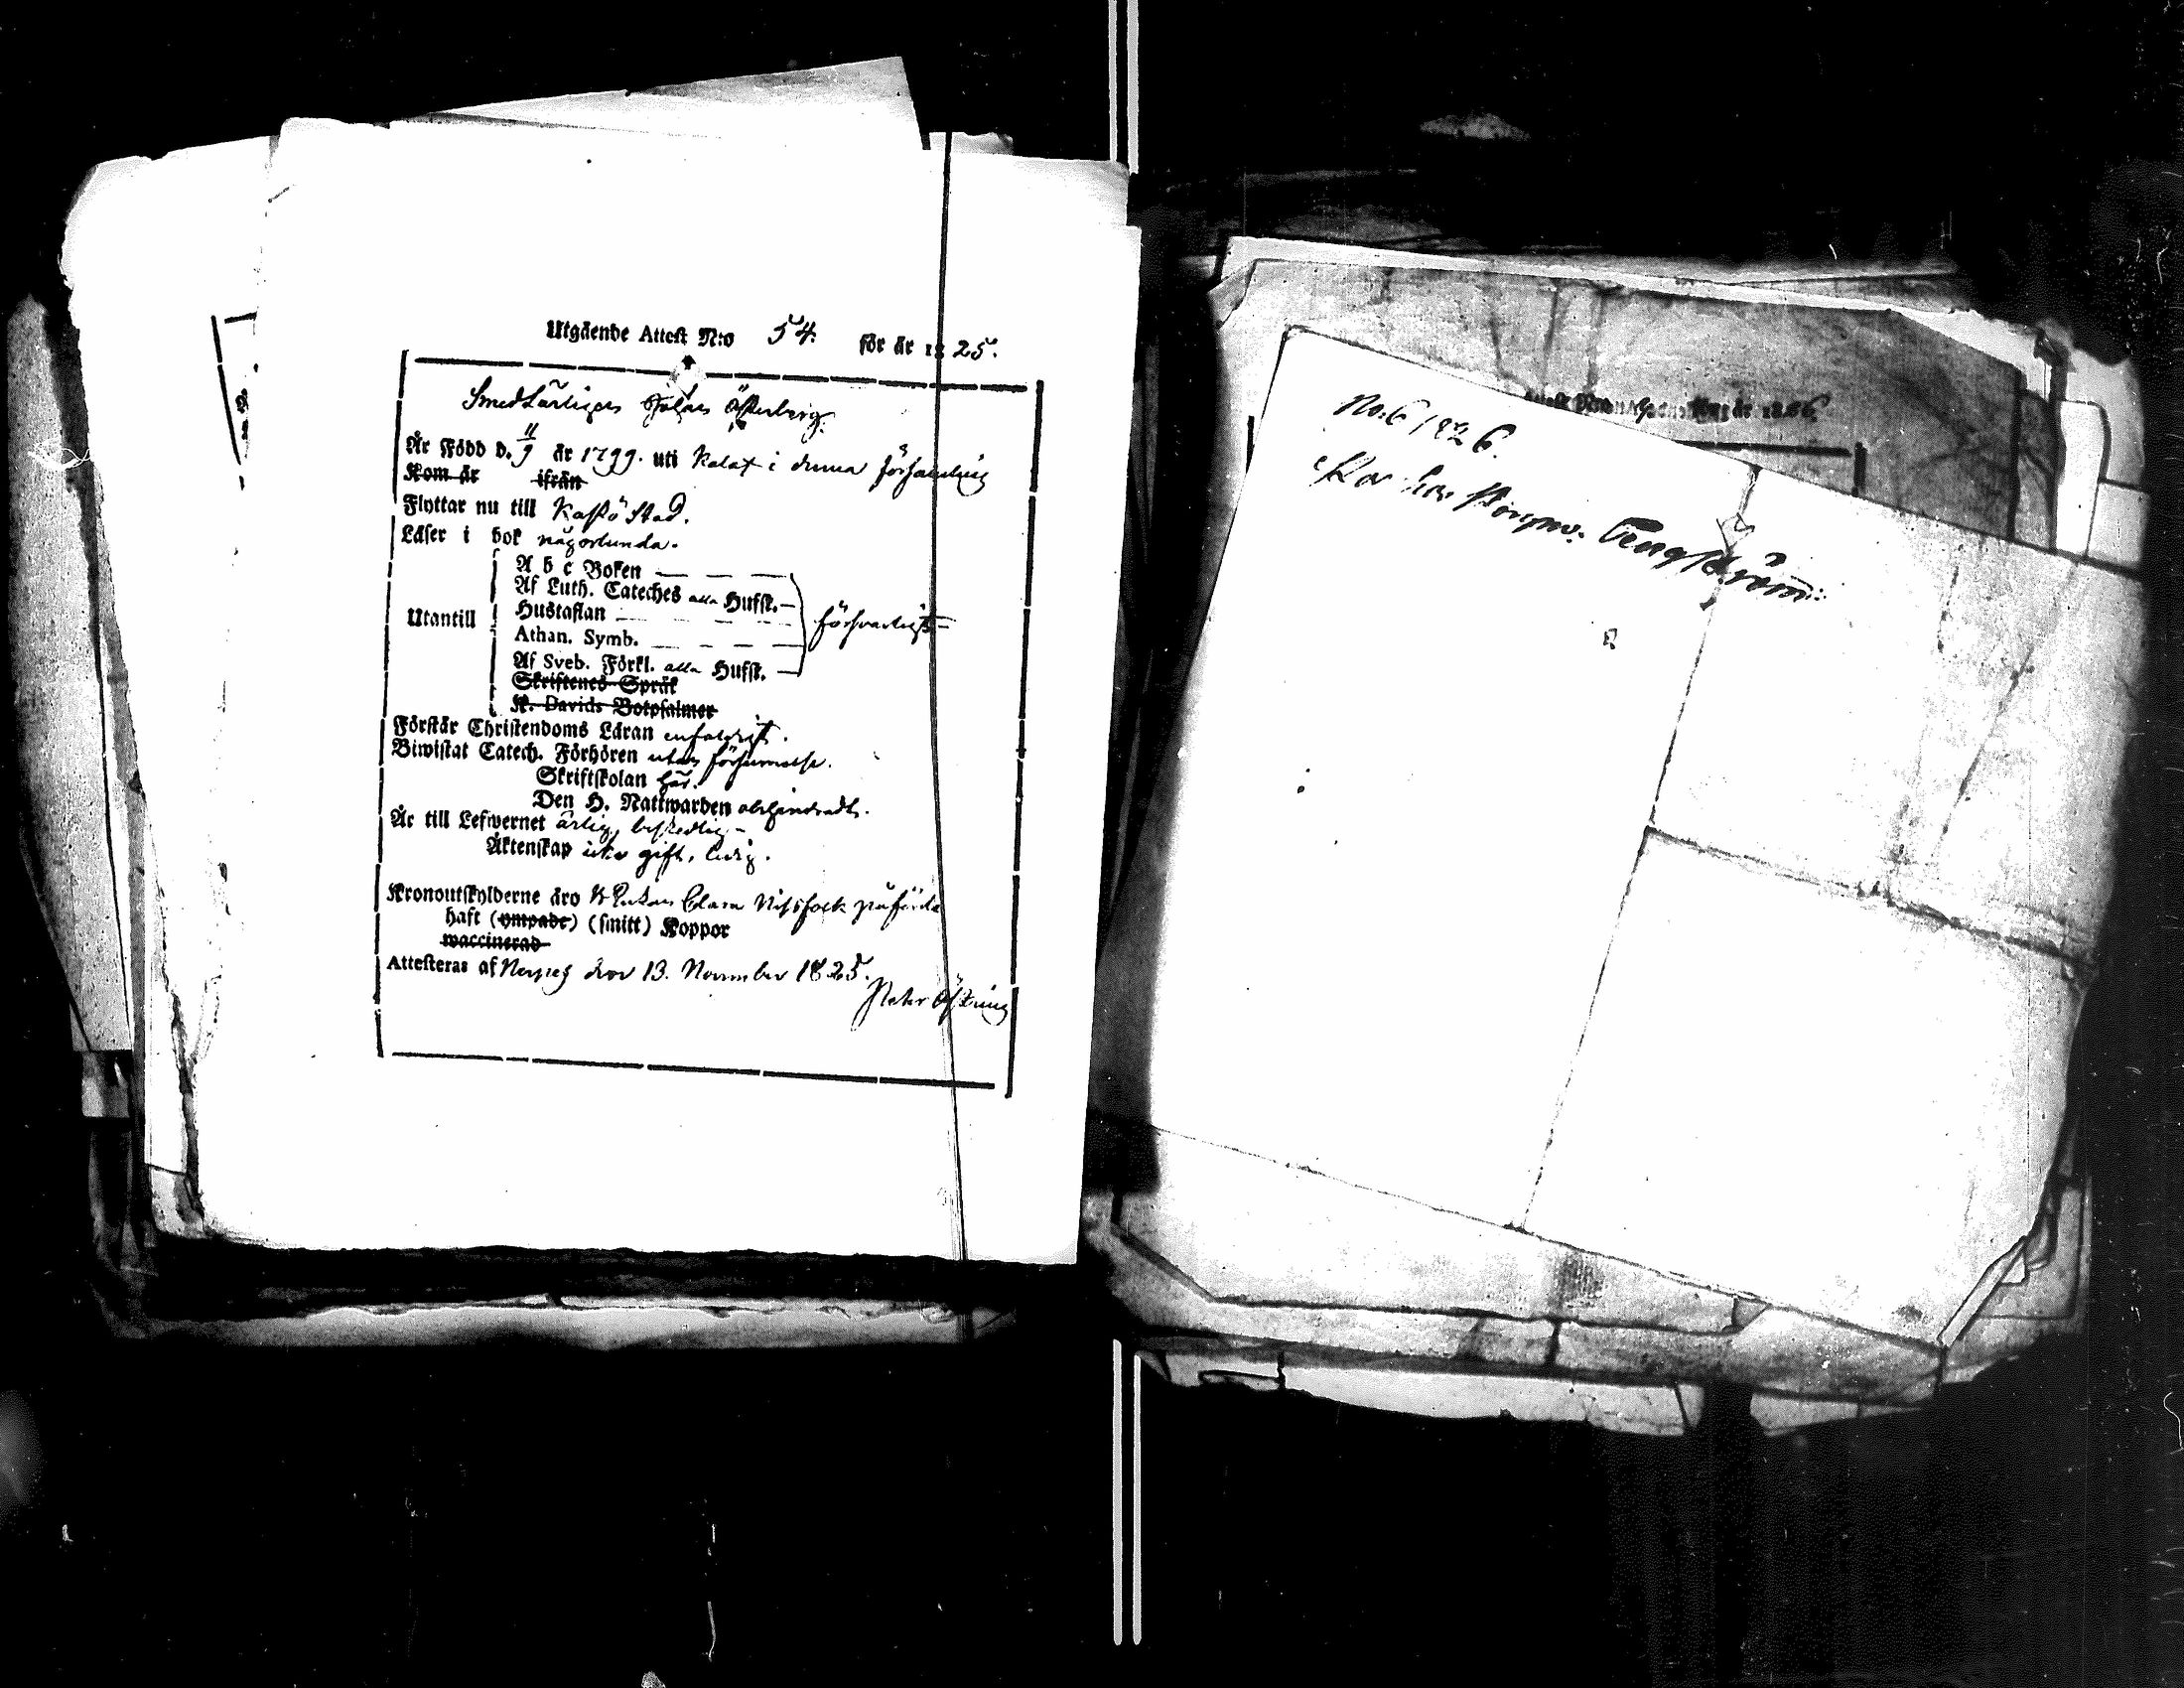 Utgående Attest N:o 54. för år 1825.
Smedlärlingen Johan Österberg.
Är Född d. 11/9 år 1799. uti Kalax i denna församling
Kom år ifrån
Flyttar nu till Kaskö Stad.
Läser i bok någorlunda.
Utantill
A b c Boken
Af Luth. Cateches alla Hufst.
Hustaflan
Athan. Symb.
försvarligt
Af Sveb. Förkl. alla Hufst.
Skriftenes Språk
K. Davids Botpsalmer
Förstår Christendoms Läran enfaldigt.
Biwistat Catech. Förhören utan försummelse.
Skriftskolan här.
Den H. Nattwarden
Är till Lefwernet ärlig, beskedlig
Äktenskap icke gift, ledig.
Kronoutskylderne äro Clara påförde
haft (ympade) (smitt) Koppor
waccinerad
Attesteras af Nerpes den 13. November 1825.
Peter Östring
No. 6 1826.
Tengström